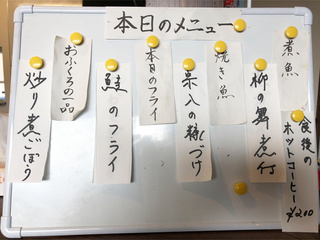 本日のメニュー
煮魚
柳の舞煮付
食後の
ホットコーヒー
¥200
焼き魚
本日のフライ
鮭のフライ
おふくろの一品
炒り煮ごぼう